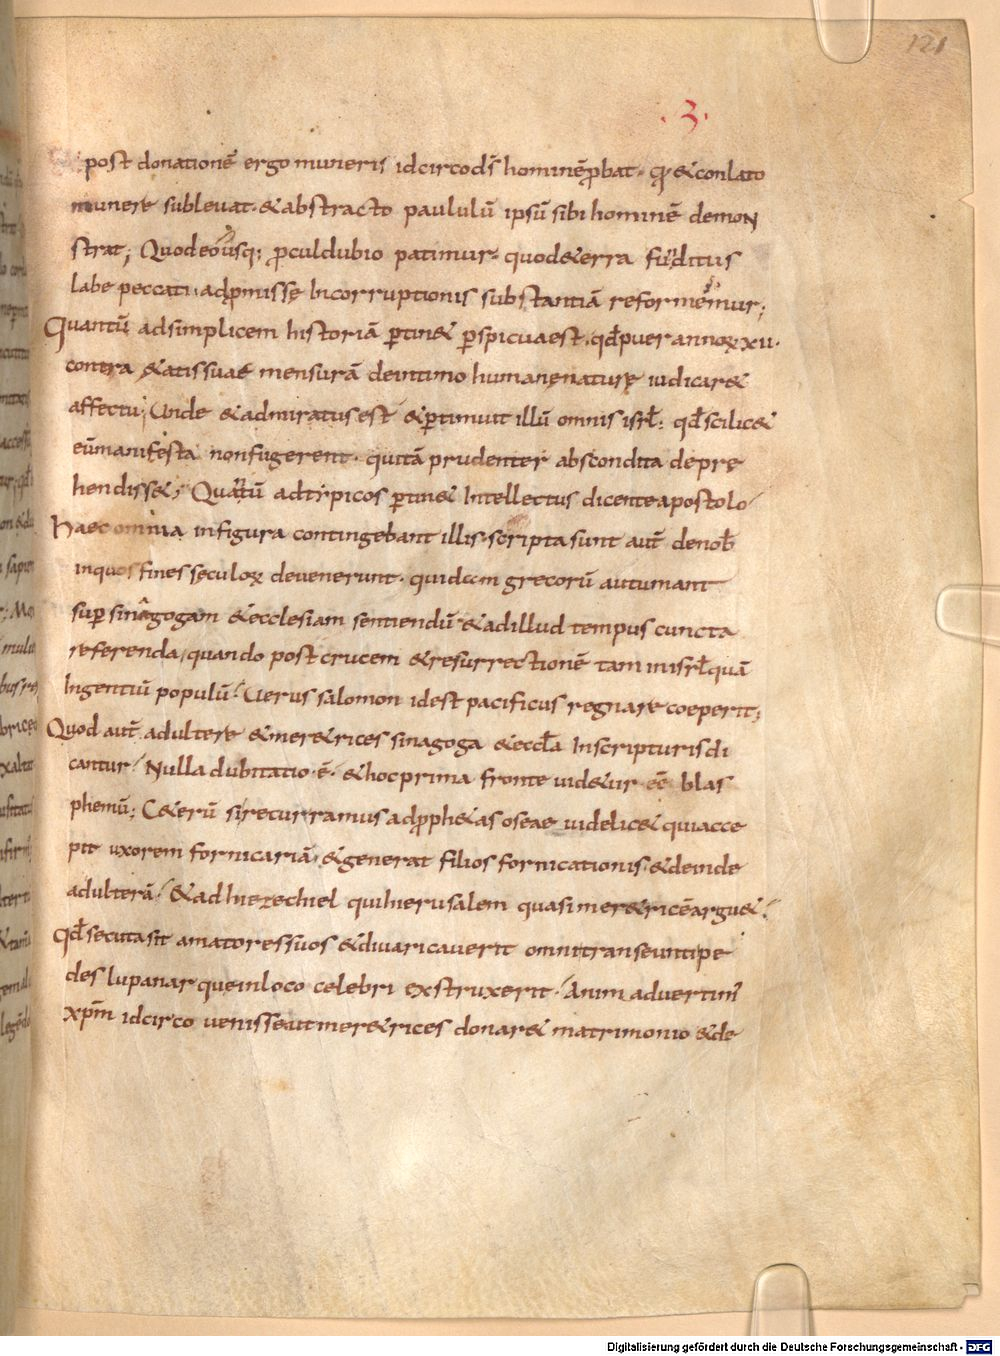 121
.3.
post donationē ergo muneris idcirco ds̄ hominē ꝓbat. qr & conlato
munere sublevat. & abstracto paululū ipsū sibi hominē demon
strat; Quod eo usq; ꝓculdubio patimur. quod & erra funditus
labe peccati. ad ꝓmissę Incorruptionis substantiā reformemur;
Quantū ad simplicem historiā ꝑtin& ꝑspicua est. qđ puer annoꝝ xii.
contra &atis suae mensurā de intimo humanę naturę iudicar&
affectu; Unde & admiratus est & ꝑtimuit illū omnis isrł: qđ scilic&
eū manifesta non fugerent. qui tā prudenter abscondita depre
hendiss&; Quantū ad typicos ꝑtin& Intellectus dicente apostolo
Haec omnia in figura contingebant illis. scripta sunt aut̄ de nob̄
in quos fines seculoꝝ devenerunt. quidam grecorū autumant
suꝑ sinagogam & ecclesiam sentiendū & ad illud tempus cuncta
referenda, quando post crucem & resurrectionē tam in isrł quā
In gentiū populū. Verus salomon id est pacificus regnare coeperit;
Quod aut̄ adultere & mer&rices sinagoga & eccła In scripturis di
cantur. Nulla dubitatio .ē. & hoc prima fronte vid&ur .eē blas
phemū; C&erū si recurramus ad ꝓph&as oseae videlic& qui acce
pit uxorem fornicariā. & generat filios fornicationis. & deinde
adulterā. & ad hiezechiel qui hierusalem quasi mer&ricē argu&.
qđ secuta sit amatores suos & divaricaverit omni transeunti pe
des lupanar que in loco celebri exstruxerit. Anim advertim̄
xp̄m idcirco venisse ut mer&rices donar& matrimonio & de
Digitalisierung gefördert durch die Deutsche Forschungsgemeinschaft - DFG